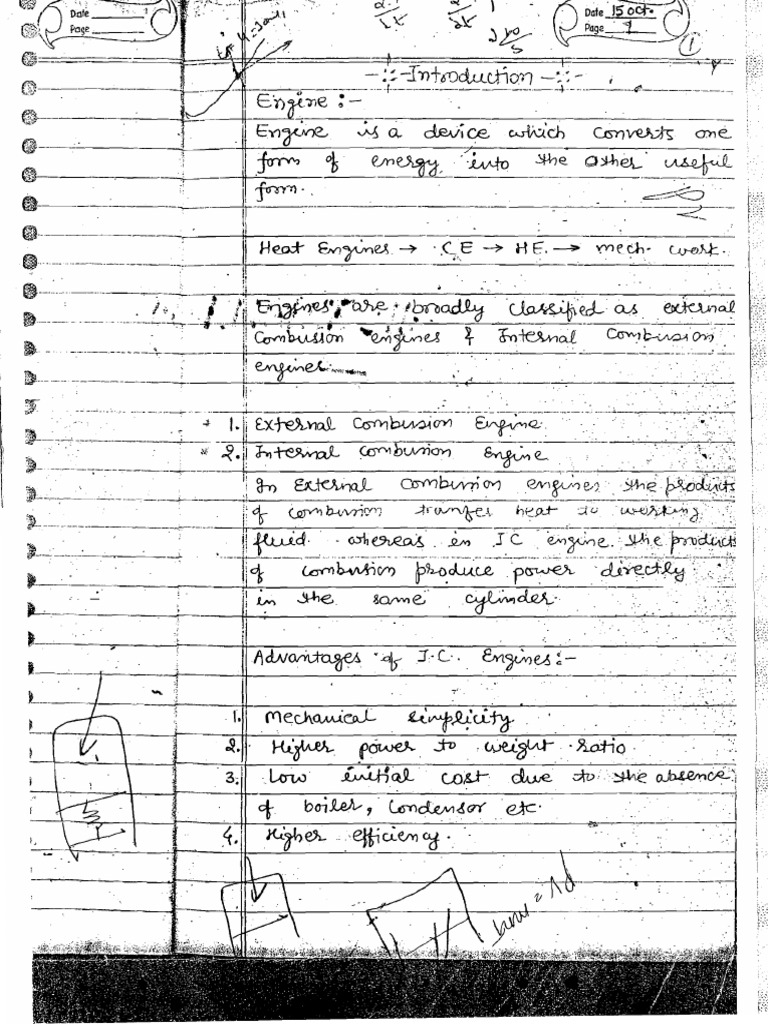 Date
Page
Date 15 oct.
Page 1
1
-::- Introduction -::-
Engine :-
Engine is a device which converts one
form of energy into the other useful
form.
Heat Engines → C.E → HE. → mech. work.
Engines are broadly classified as external
Combusion engines & Internal Combusion
engines
1. External Combusion Engine
2. Internal combusion Engine
In External Combusion engines the products
of combusion transfer heat to working
fluid whereas in IC engine the product
of combusion produce power directly
in the same cylinder.
Advantages of I.C. Engines:-
1. Mechanical simplicity
2. Higher power to weight ratio
3. Low initial cost due to the absence
of boiler, Condensor etc.
4. Higher efficiency.